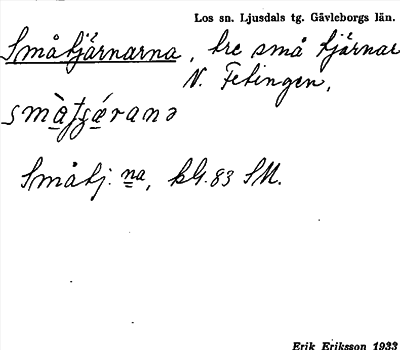 Los sn. Ljusdals tg. Gävleborgs län.
Småtjärnarna, tre små tjärnar
N. Fetingen,
Småtj:na, bl. 83 SM.
Erik Eriksson 1933